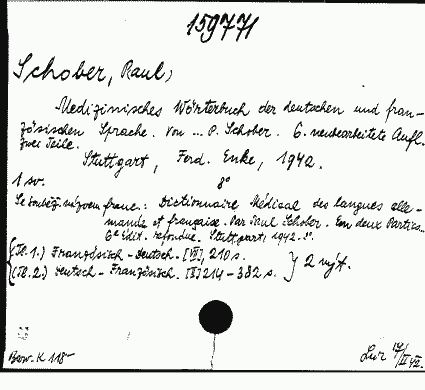 159771
Schober, Paul,
Medizinisches Wörterbuch der deutschen und fran-
zösischen Sprache. Von ... P. Schober. 6. neubearbeitete Aufl.
Zwei Teile.
Stuttgart, Ferd. Enke, 1942.
8°
1 sv.
franc.: Dictionnaire Médical des langues alle-
mande et française. Par Paul Schober. En deux Parties...
6e Edit. refondue. Stuttgart, 1942. 8°.
(Tl. 1.) Französisch-Deutsch. [VII], 210 s.
(Tl. 2.) Deutsch-Französisch. [II] 214-382 s. } 2 
Bow. K 118
Lur 17/II 42.